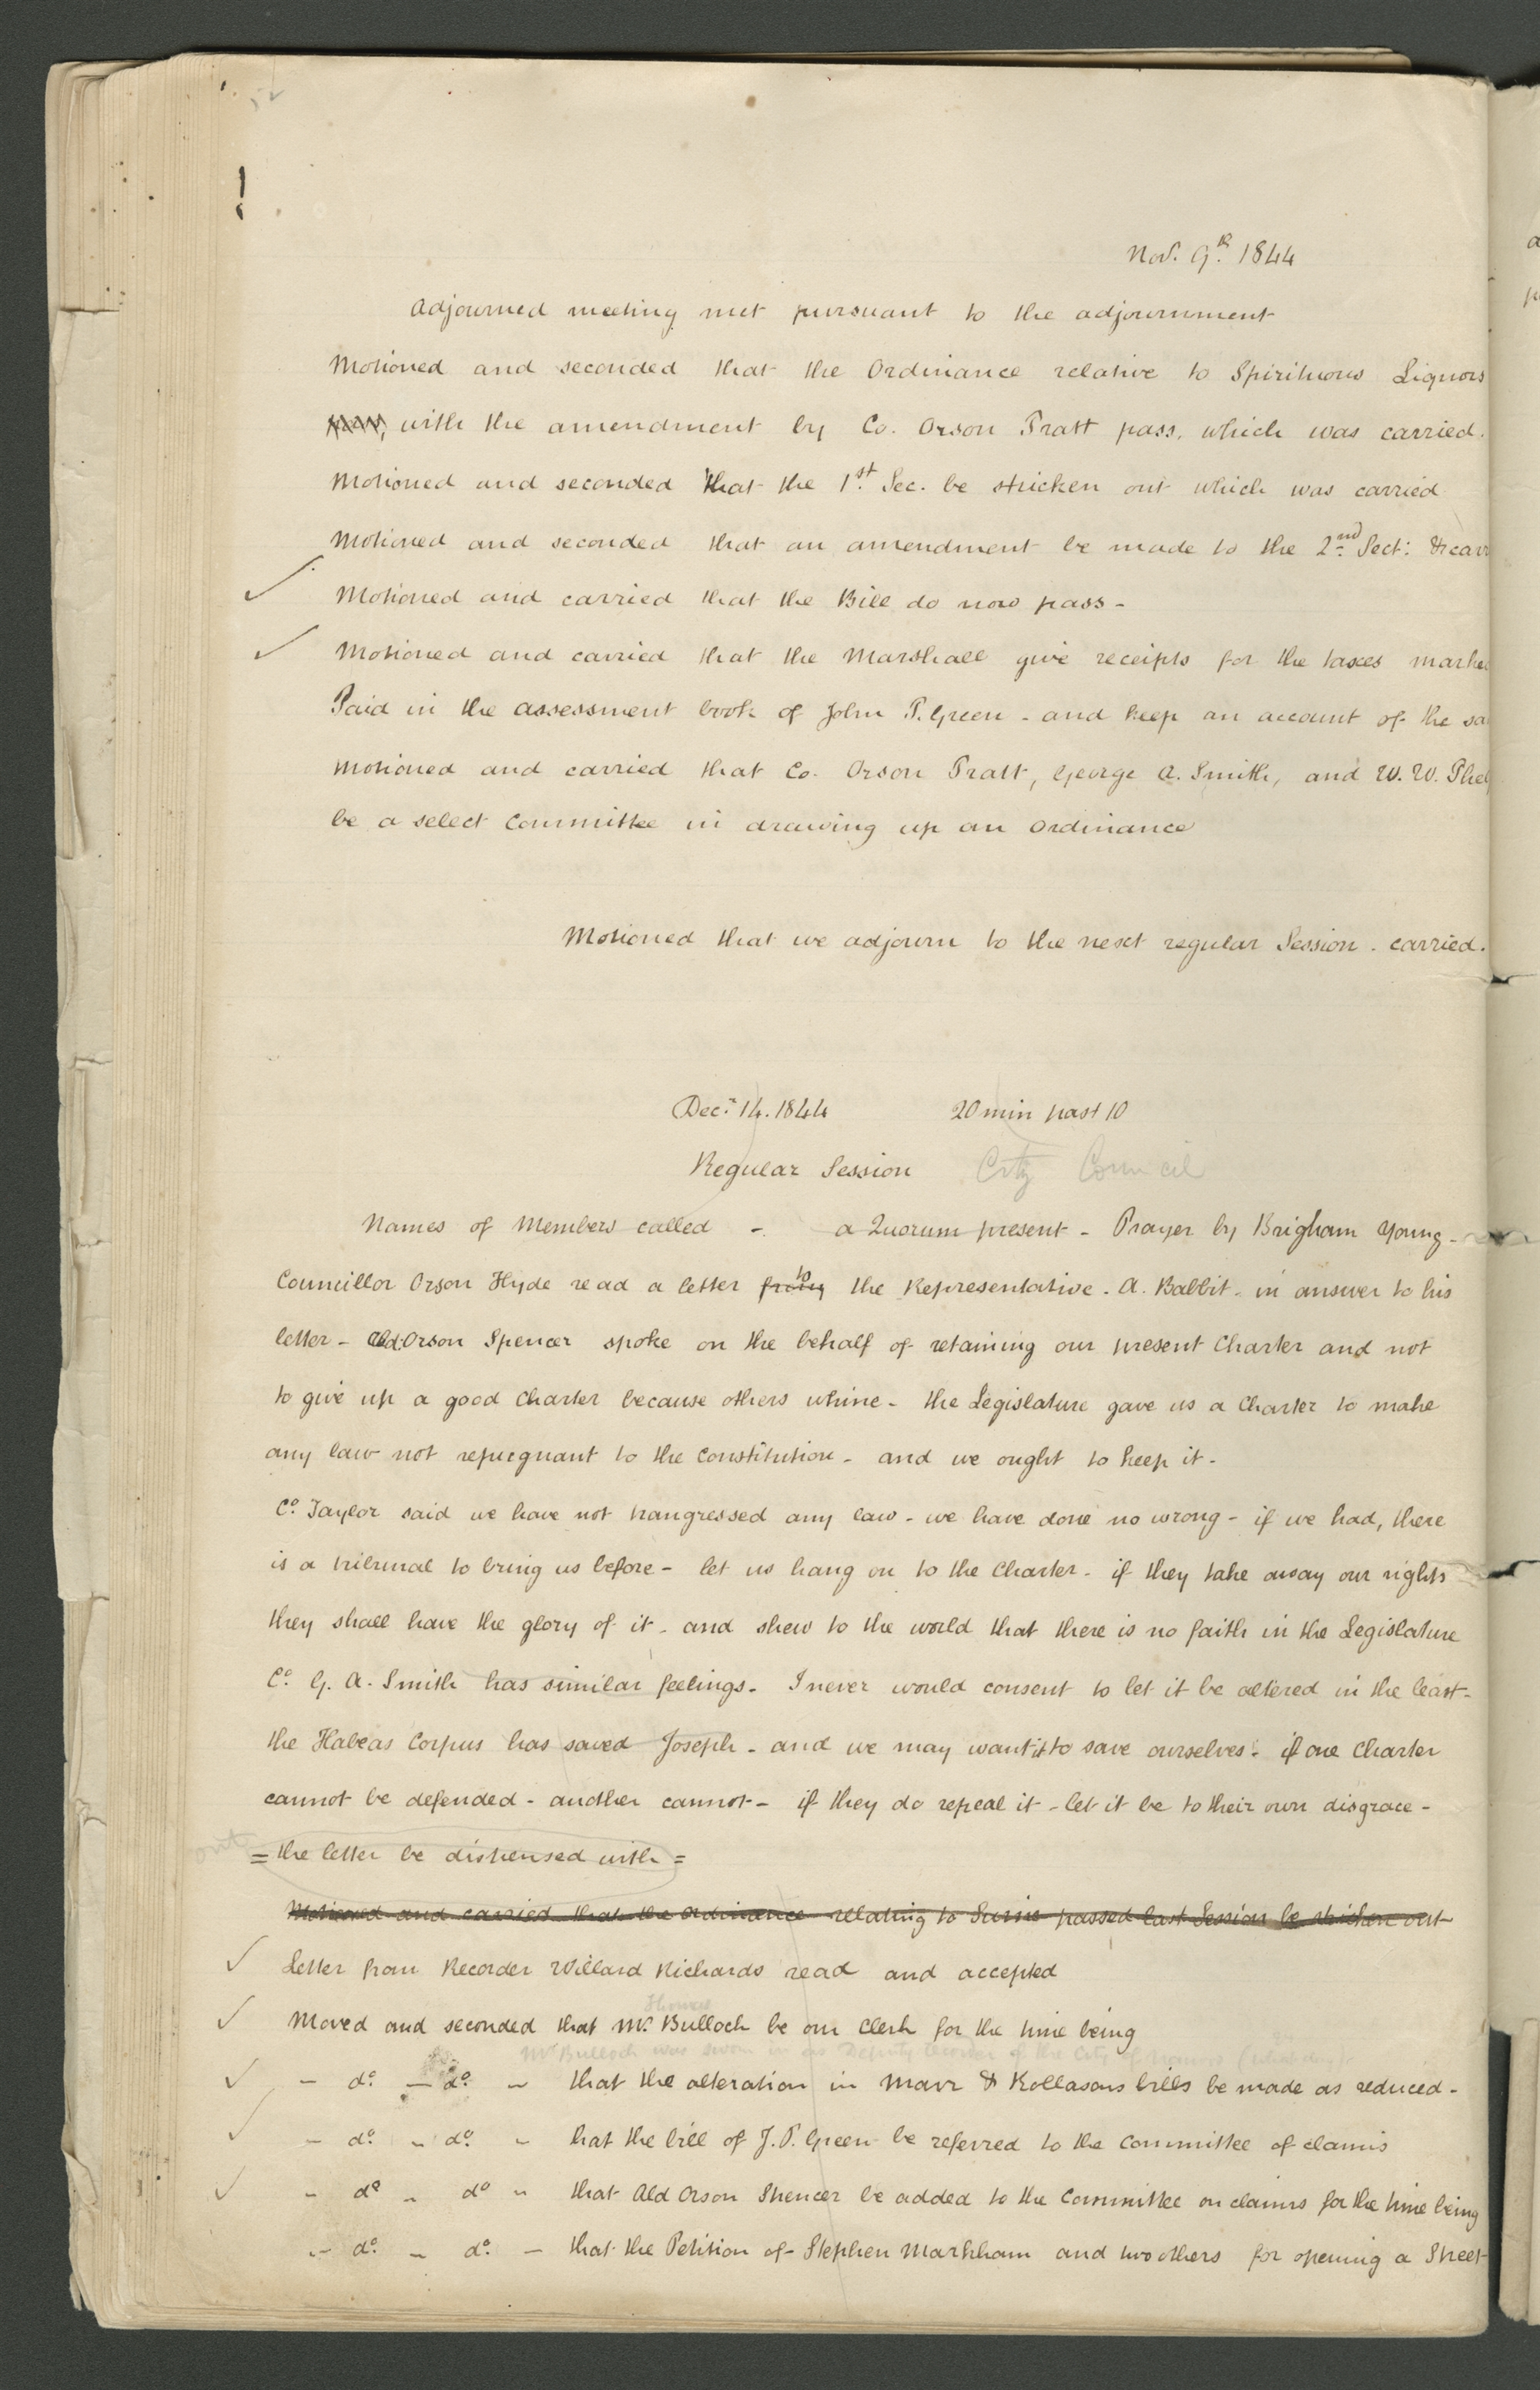 Nov. 9th. 1844
Adjourned meeting met pursuant to the adjournment
Motioned and seconded that the Ordinance relative to Spirituous Liquors
with the amendment by Co. Orson Pratt pass, which was carried.
Motioned and seconded that the 1st. Sec. be stricken out which was carried
Motioned and seconded that an amendment be made to the 2nd Sect: & carr
Motioned and carried that the Bill do now pass -
Motioned and carried that the Marshall give receipts for the taxes marke
Paid in the assessment book of John P. Green - and keep an account of the sa
Motioned and carried that Co. Orson Pratt, George A. Smith, and W. W. Phel
be a select Committee in drawing up an Ordinance
Motioned that we adjourn to the next regular Session - carried.
Decr. 14. 1844 20 min past 10
Regular Session City Council
Names of Members called - a Quorum present - Prayer by Brigham Young -
Councillor Orson Hyde read a letter from to the Representative. A. Babbit - in answer to his
letter - Ald. Orson Spencer spoke on the behalf of retaining our present Charter and not
to give up a good Charter because others whine - the Legislature gave us a Charter to make
any law not repuegnant to the Constitution - and we ought to keep it -
Co. Taylor said we have not trangressed any law - we have done no wrong - if we had, there
is a tribunal to bring us before - let us hang on to the Charter - if they take away our rights
they shall have the glory of it - and shew to the world that there is no faith in the Legislature
Co. G. A. Smith has similar feelings - I never would consent to let it be altered in the least -
the Habeas Corpus has saved Joseph - and we may want it to save ourselves - if one Charter
cannot be defended - another cannot - if they do repeal it - let it be to their own disgrace -
out
= the letter be dispensed with =
Motioned and carried that the Ordinance relating to Swine passed last Session be stricken out
Letter from Recorder Willard Richards read and accepted
Thomas
Moved and seconded that Mr. Bulloch be our Clerk for the time being
Mr Bulloch was sworn in as Deputy Recorder of the City of Nauvoo
- do. - do. - that the alteration in Marr & Rollasons bills be made as reduced -
- do. - do. - that the bill of J. P. Green be referred to the Committee of claims
- do - do - that Ald Orson Spencer be added to the Committee on claims for the time being
- do. - do. - that the Petition of Stephen Markham and two others for opening a Street